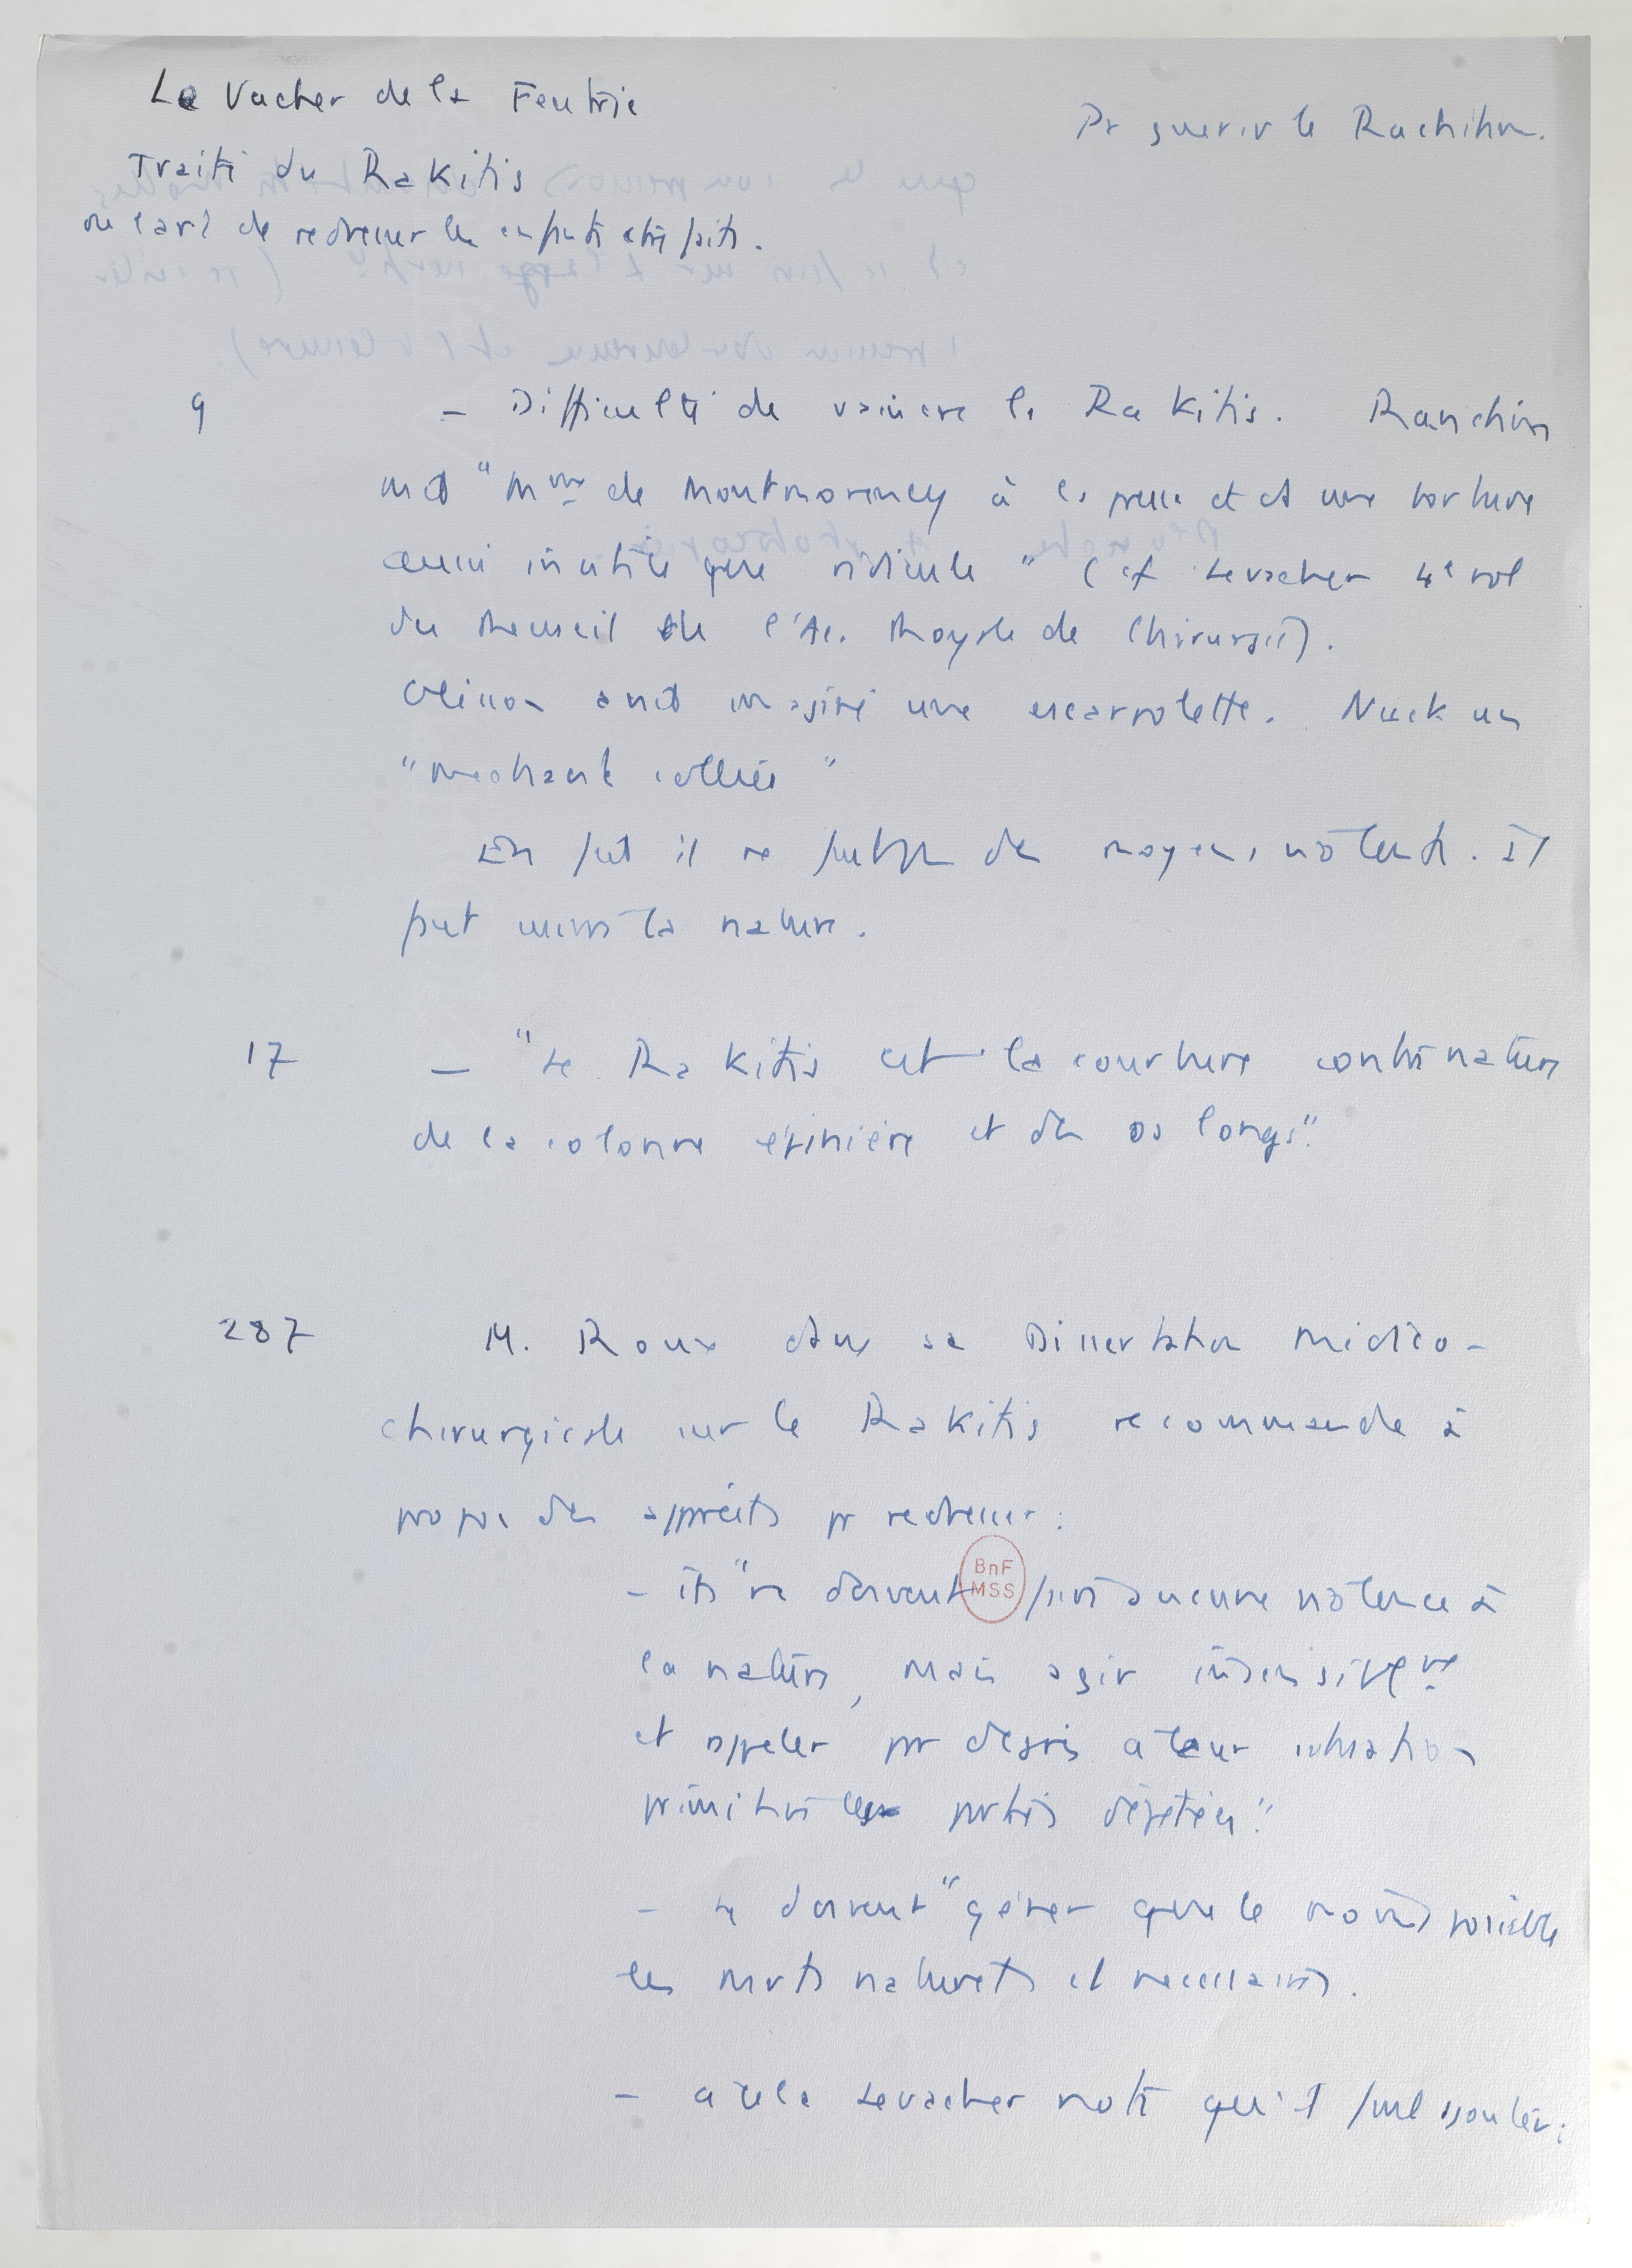 Le Vacher de la Feutrie
Pr guerir le Rachitism.
Traité du Rakitis
ou l'art de redresser les enfants contrefaits.
9 – Difficulté de vaincre le Rakitis. Ranchin
met "Mme de Montmorency à la presse et et une torture
aussi inutile que ridicule" (cf Levacher 4e vol
du Recueil de l'Ac. Royale de Chirurgie).
Glisson avait imaginé une escarpolette. Nuck un
"mechant collier"
En fait il ne faut pas des moyens violents. Il
faut suivre la nature.
17 – "Le Rakitis est la courbure contre nature
de la colonne épinière et des os longs".
287 M. Roux dans sa Dissertation médico-
chirurgicale sur le Rakitis recommande à
propos des apprêts pr redresser :
– ils "ne doivent faire aucune violence à
BnF
MSS
la nature, mais agir insensiblemt
et appeler par degrés a leur situation
primitive les parties déjetées"
– ne doivent "gêner que le moins possible
les mvts naturels et necessaires.
– a cela Levacher note qu'il faut ajouter :